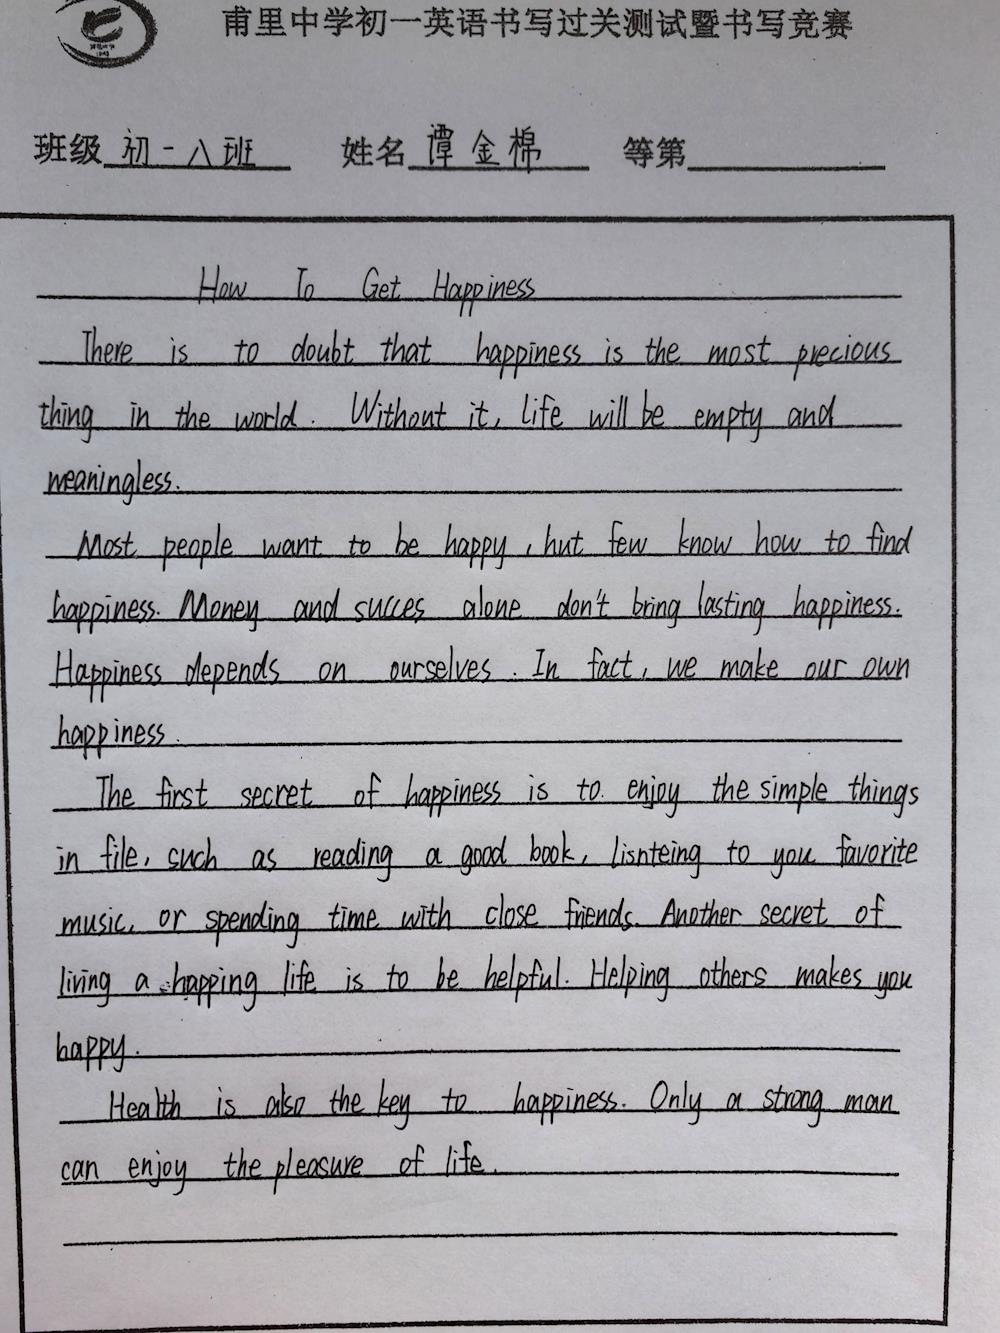 甫里中学初一英语书写过关测试暨书写竞赛
班级 初一八班 姓名 谭金棉 等第
How To Get Happiness
There is to doubt that happiness is the most precious
thing in the world. Without it, life will be empty and
meaningless.
Most people want to be happy, but few know how to find
happiness. Money and succes alone don't bring lasting happiness.
Happiness depends on ourselves. In fact, we make our own
happiness.
The first secret of happiness is to enjoy the simple things
in file, such as reading a good book, lisnteing to you favorite
music, or spending time with close friends. Another secret of
living a happing life is to be helpful. Helping others makes you
happy.
Health is also the key to happiness. Only a strong man
can enjoy the pleasure of life.